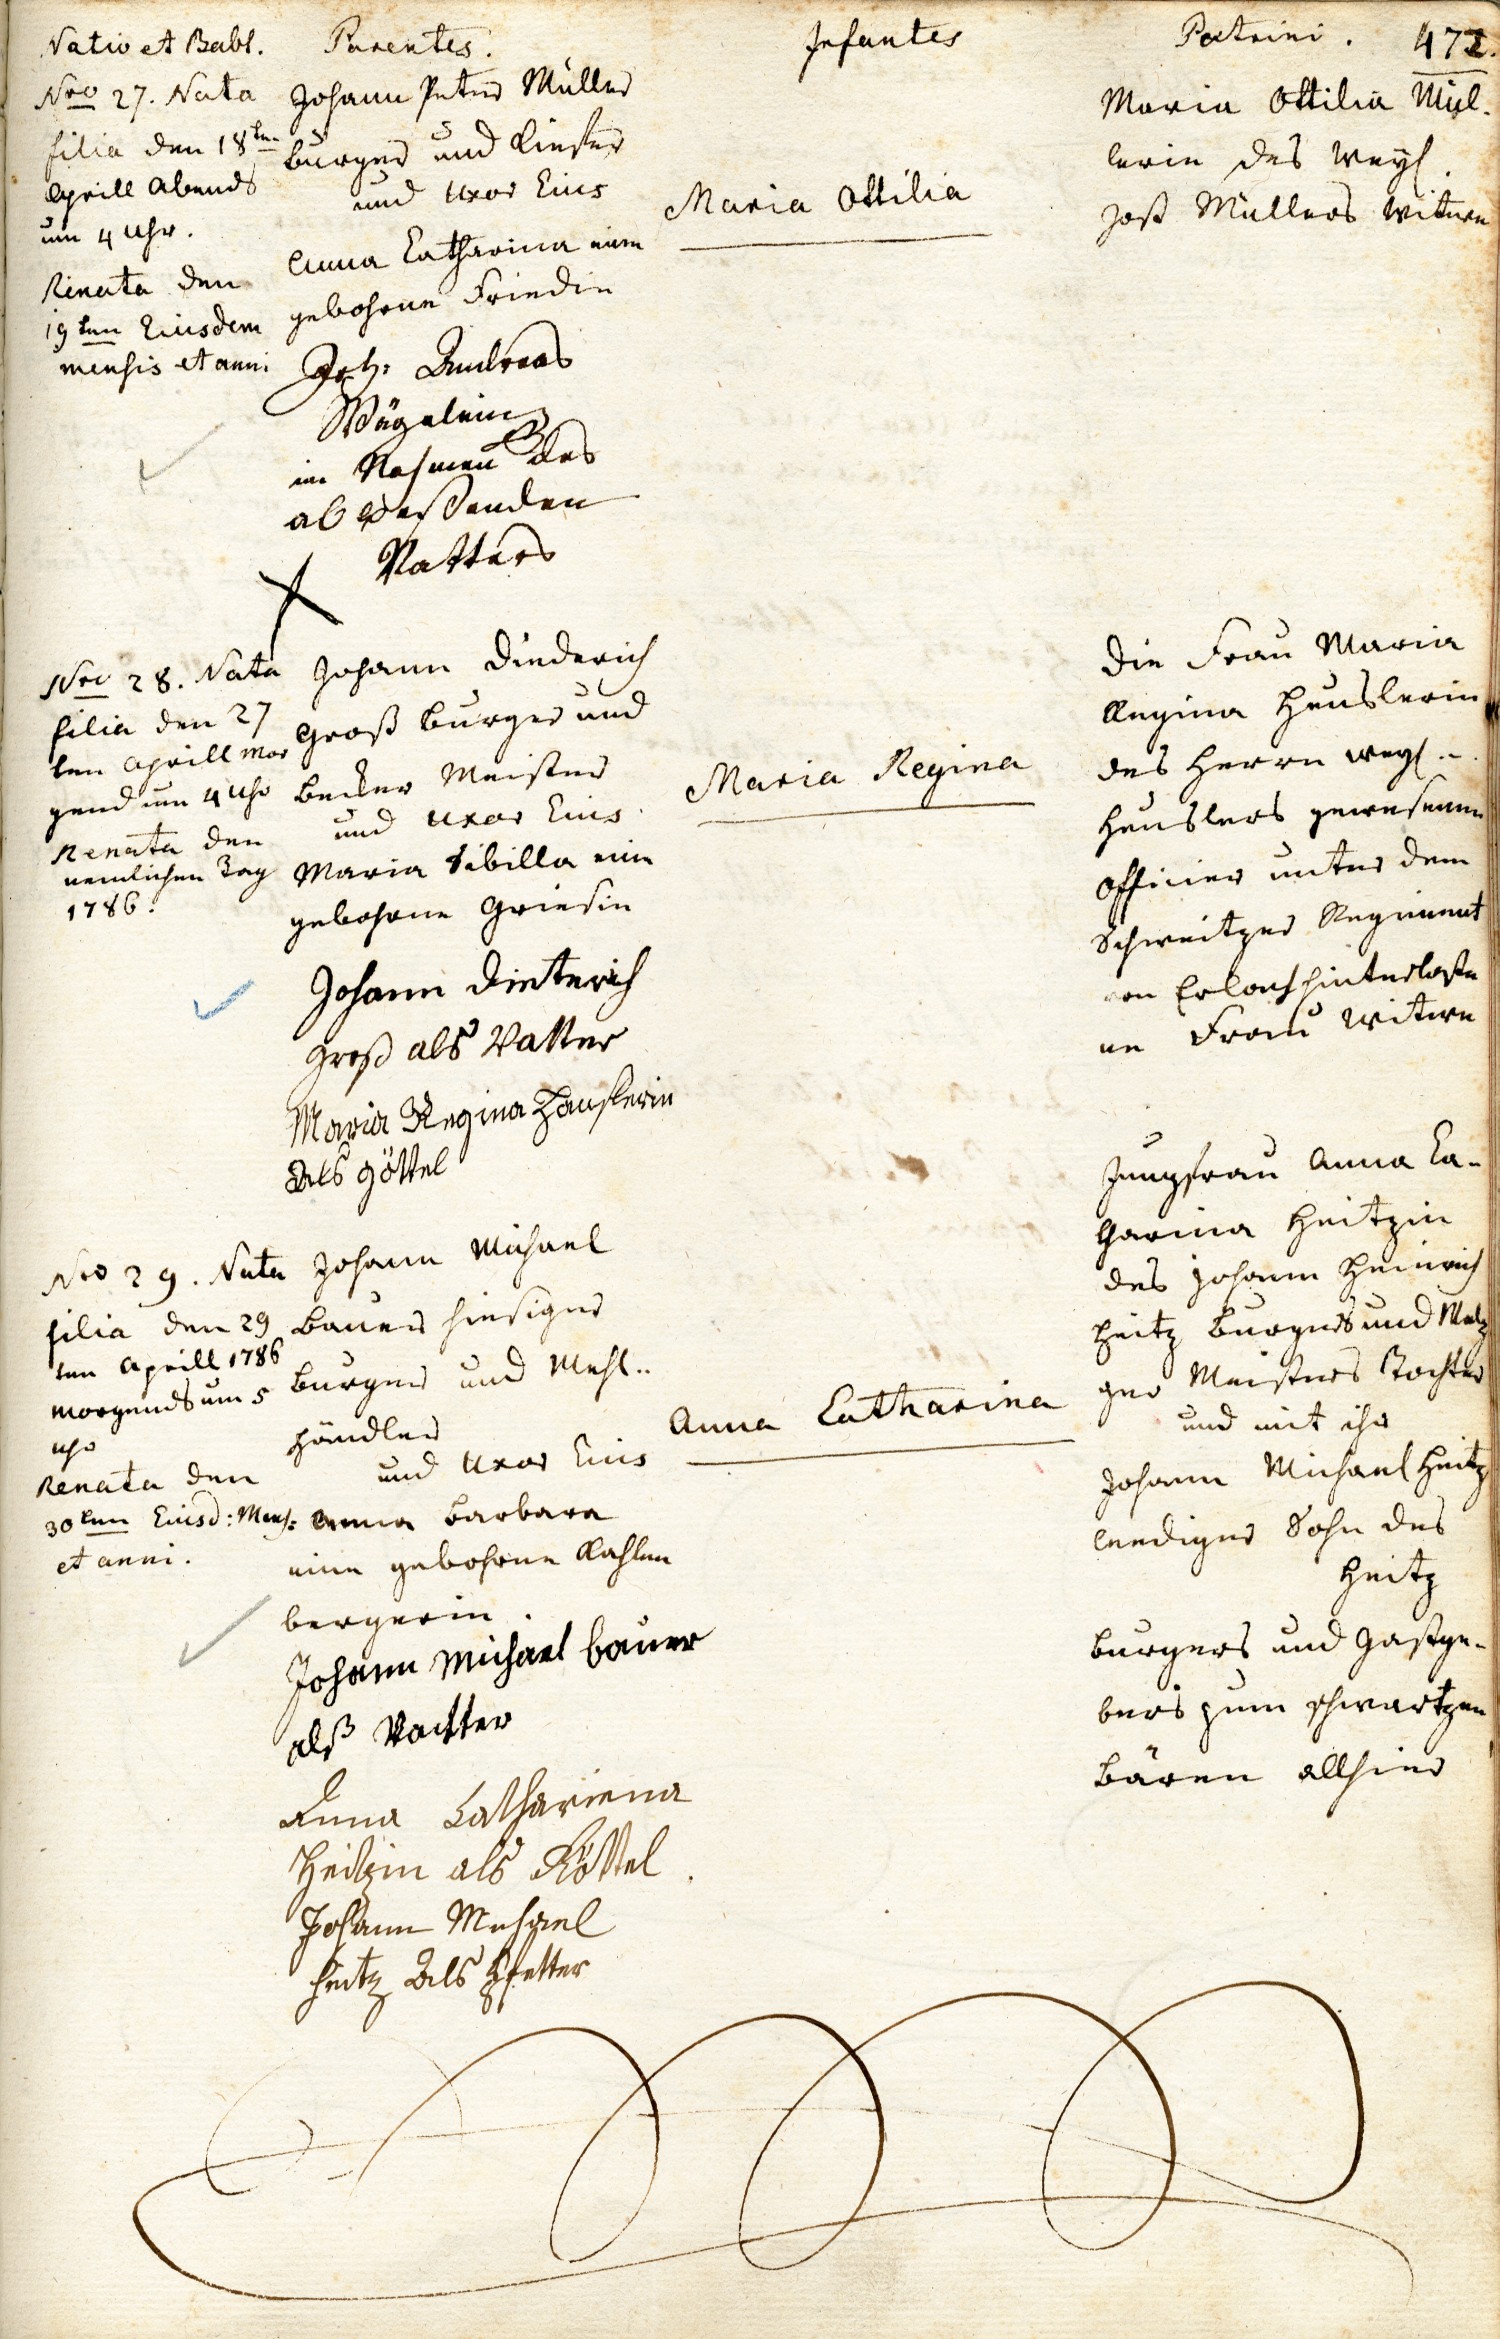 Natio et Babt.
Parentes.
Infantes
Patrini.
472.
Nro 27. Nata
filia den 18ten
Aprill Abends
um 4 Uhr.
Renata den
19ten Eiusdem
mensis et anni
Johann Peter Müller
burger und Kiefer
und Uxor Eius
Anna Catharina eine
gebohrne Friedin
Joh: Andreas
Wägelein
im Nahmen des
abweßenden
Vatters
Maria Ottilia
Maria Ottilia Mül-
lerin des weyl.
Joß Müllers Witwe
Nro 28. Nata
filia den 27
ten Aprill mor
gend um 4 Uhr
Renata den
nemlichen Tag
1786.
Johann Diederich
Groß burger und
becker Meister
und Uxor Eius
Maria Sibilla eine
gebohrne Griesin
Johann Dieterich
Groß als Vatter
Maria Regina Häuslerin
als göttel
Maria Regina
Die Frau Maria
Regina Heuslerin
des Herrn weyl.
Heuslers gewesenen
Officier unter dem
Schweitzer Regiment
von Erlach hinterlaße
ne Frau Witwe
Nro 29. Nata
filia den 29
ten Aprill 1786
morgends um 5
uhr
Renata den
30ten Eiusd: Mens:
et anni.
Johann Michael
Bauer hiesiger
burger und Mehl..
händler
und Uxor Eius
Anna Barbara
eine gebohrne Kahlen
bergerin.
Johann Michael bauer
alß Vatter
Anna Cathariena
Heitzin als Göttel.
Johann Michael
Heitz als Pfetter
Anna Catharina
Jungfrau Anna Ca-
tharina Heitzin
des Johann Heinrich
Heitz burgers und Metz
ger Meisters Tochter
und mit ihr
Johann Michael Heitz
leediger Sohn des
Heitz
burgers und gastge-
bers zum schwartzen
Bären allhier